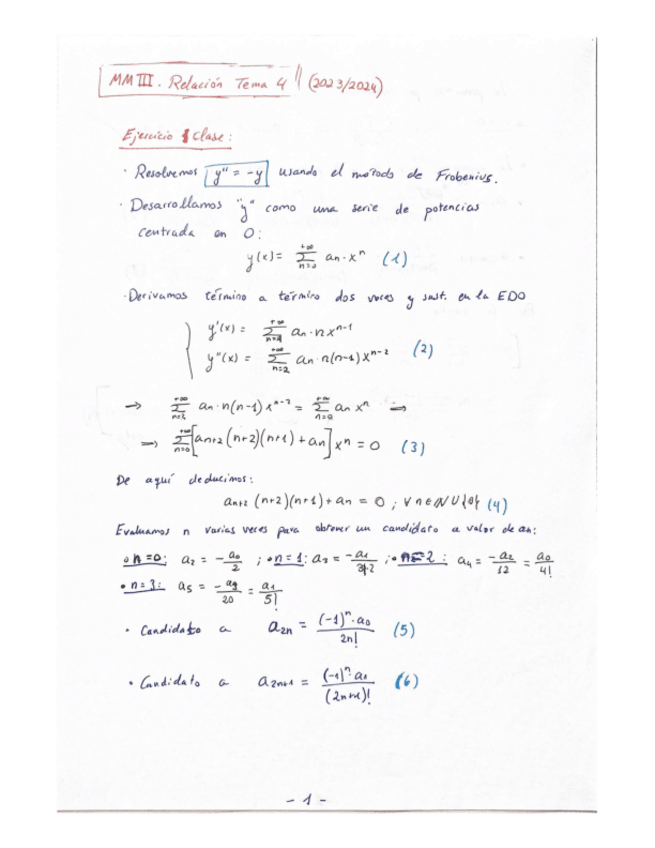 MMIII. Relación Tema 4 (2023/2024)
Ejercicio 1 Clase:
· Resolvemos y'' = -y usando el método de Frobenius.
· Desarrollamos "y" como una serie de potencias
centrada en 0:
y(x) = ∑_{n=0}^{+∞} an · x^n (1)
· Derivamos término a término dos veces y sust. en la EDO
y'(x) = ∑_{n=1}^{+∞} an · n x^{n-1}
y''(x) = ∑_{n=2}^{+∞} an · n(n-1) x^{n-2} (2)
→ ∑_{n=2}^{+∞} an · n(n-1) x^{n-2} = ∑_{n=0}^{+∞} an x^n ⇒
⇒ ∑_{n=0}^{+∞} [an+2 (n+2)(n+1) + an] x^n = 0 (3)
De aquí deducimos:
an+2 (n+2)(n+1) + an = 0 ; ∀ n ∈ ℕ ∪ {0} (4)
Evaluamos n varias veces para obtener un candidato a valor de an:
• n=0: a2 = -a0/2 ; • n=1: a3 = -a1/3·2 ; • n=2: a4 = -a2/12 = a0/4!
• n=3: a5 = -a3/20 = a1/5!
· Candidato a a2n = (-1)^n · a0 / 2n! (5)
· Candidato a a2n+1 = (-1)^n · a1 / (2n+1)! (6)
- 1 -